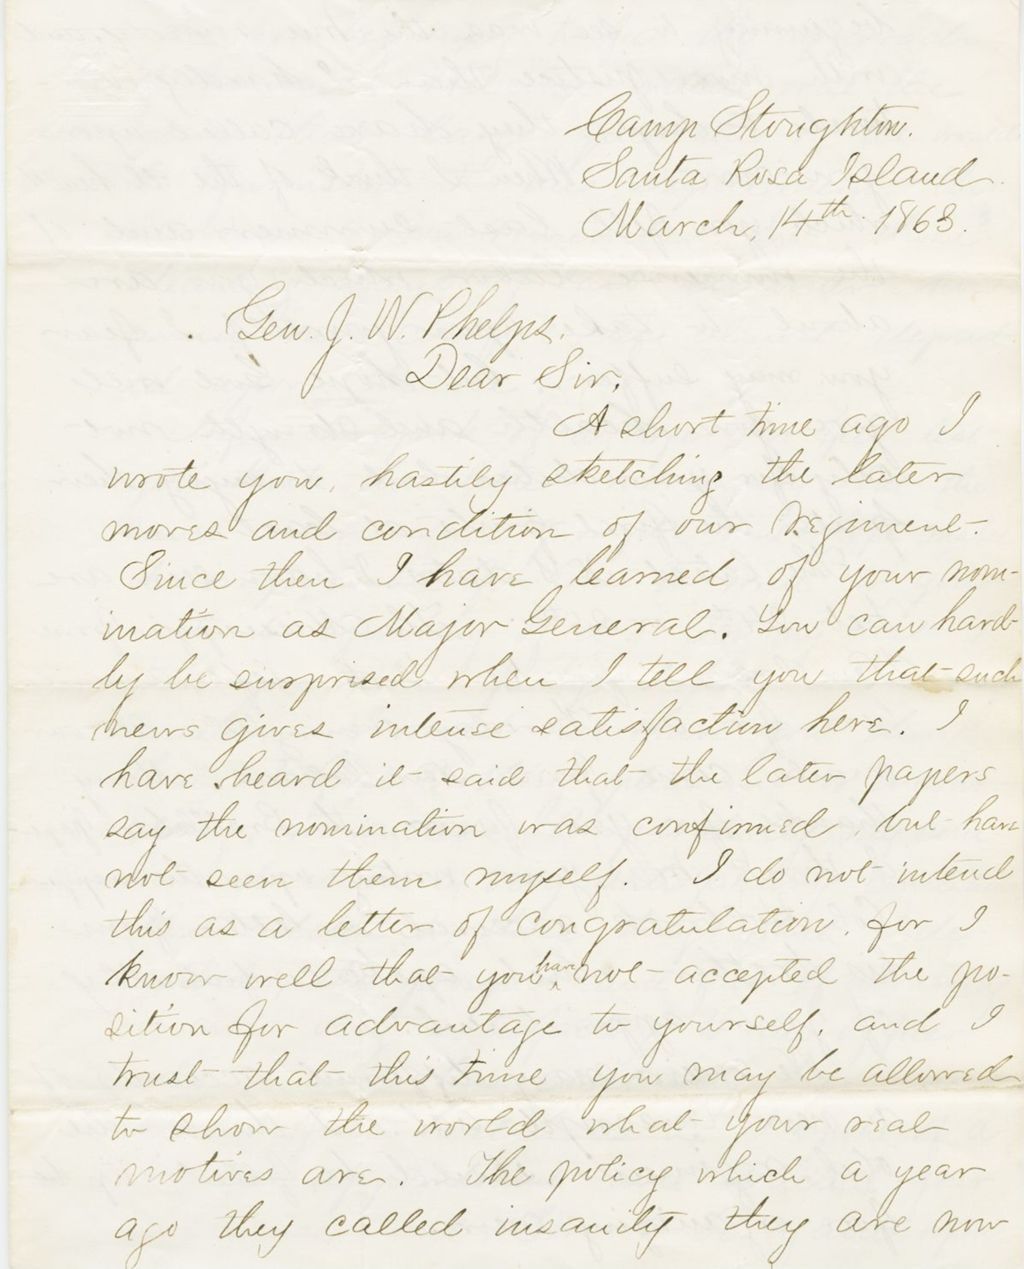 Camp Stoughton.
Santa Rosa Island
March, 14th 1863.
Gen. J. W. Phelps.
Dear Sir,
A short time ago I
wrote you, hastily sketching the later
moves and condition of our regiment.
Since then I have learned of your nom-
ination as Major General. You can hard-
ly be surprised when I tell you that such
news gives intense satisfaction here. I
have heard it said that the later papers
say the nomination was confirmed, but have
not seen them myself. I do not intend
this as a letter of congratulation, for I
know well that you have not accepted the po-
sition for advantage to yourself, and I
trust that this time you may be allowed
to show the world what your real
motives are. The policy which a year
ago they called insanity they are now